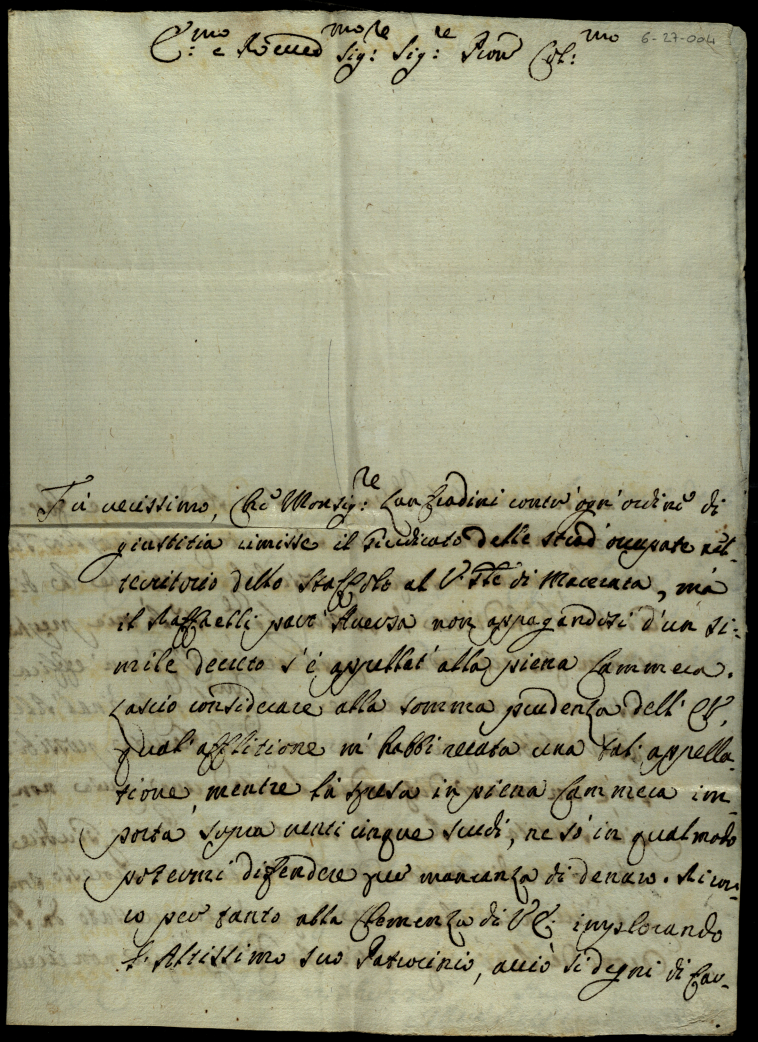 E:mo e R͞evered mo Sig:re Sig:re Pron Col:mo 6-27-004
Fù verissimo, che Monsig:re Lanfradini contr' ogn' ordine di
giustitia rimisse il Giudicato delle strad' occupate nel
territorio dello Staffolo al V. di Macerata, mà
il Raffaelli part' Aversa non appagandosi d' un si-
mile decreto s' è appellat' alla piena Cammera.
Lascio considerare alla somma prudenza dell' EV,
qual' afflitione m' habbi recata una tal' appella-
tione, mentre la spesa in piena Cammera im-
porta sopra venti cinque scudi, ne sò in qual modo
potermi difendere per mancanza di denaro. Ricor-
ro per tanto alla Clemenza di VE. implorando
l' Altissimo suo Patrocinio, acciò si degni di far-